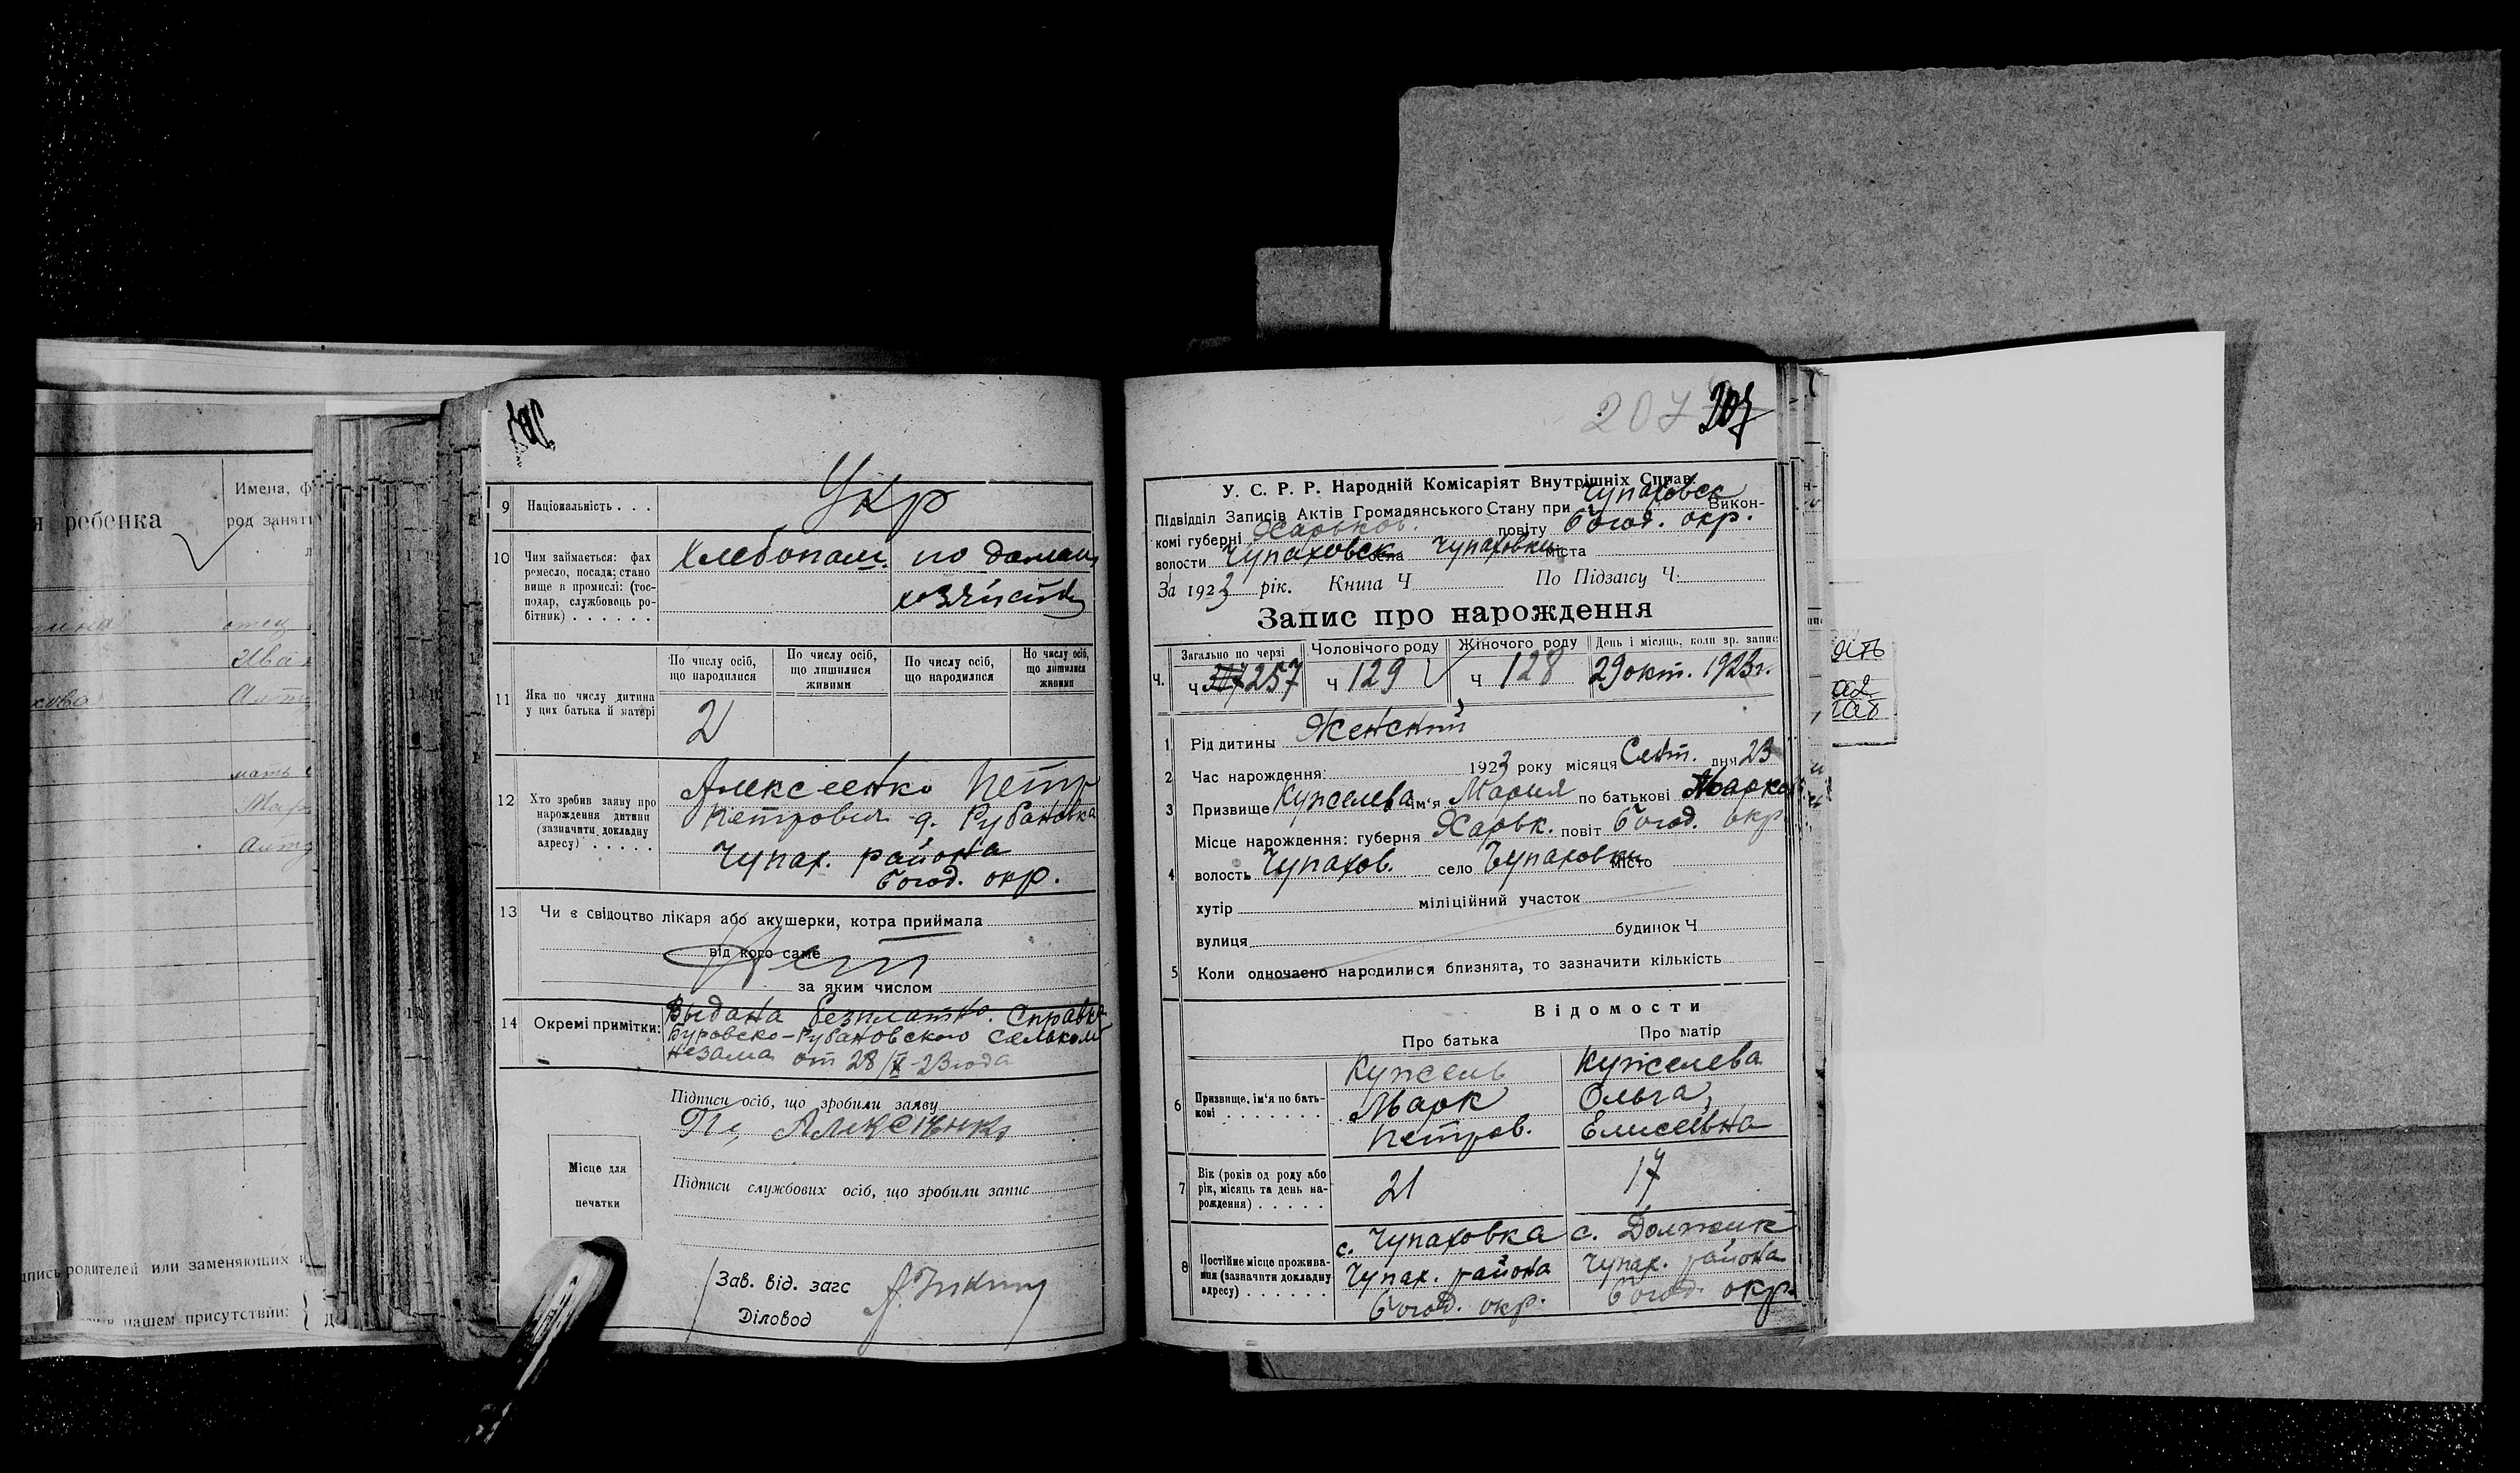 Имена, ф
я ребенка
род заняти
отец
Ива
мать
Мар
родителей или заменяющих и
в нашем присутствии:
9 Національність . . . Укр
10 Чим займається: фах ремесло, посада; становище в промислі: (господар, службовець робітник) . . . . . .
Хлебопаш. по домашн
хозяйству
11 Яка по числу дитина у цих батька й матері
По числу осіб, що народилися
По числу осіб, що лишилися живими
По числу осіб, що народилися
По числу осіб, що лишилися живими
2
12 Хто зробив заяву про нарождення дитини (зазначити докладну адресу) . . . . .
Алексеенко Петр
Петрович д. Рубановка
Чупах. района
Богод. окр.
13 Чи є свідоцтво лікаря або акушерки, котра приймала
від кого саме Нет
за яким числом
14 Окремі примітки:
Выдана безплатно. Справка
Буровско-Рубановского Сельком
незама от 28/X-23 года
Підписи осіб, що зробили заяву
Пе Алексіенко
Місце для
печатки
Підписи службових осіб, що зробили запис
Зав. від. загс
Діловод
207 207
У. С. Р. Р. Народній Комісаріят Внутрішніх Справ.
Підвідділ Записів Актів Громадянського Стану при Чупаховск Викон-
комі губерні Харьков. повіту Богод. окр.
волости Чупаховск села Чупаховки міста
За 1923 рік. Книга Ч По Підзагсу Ч.
Запис про нарождення
Загально по черзі Чоловічого роду Жіночого роду День і місяць, коли зр. запис
Ч. Ч 307 257 Ч 129 Ч 128 29 окт. 1923 г.
1 Рід дитини Женский
2 Час нарождення: 1923 року місяця Сент. дня 23
3 Призвище Кужелева ім'я Мария по батькові Марков
Місце нарождення: губерня Харьк. повіт Богод. окр
4 волость Чупахов. село Чупаховки місто
хутір міліційний участок
вулиця будинок Ч
5 Коли одночасно народилися близнята, то зазначити кількість
Відомости
Про батька Про матір
6 Призвище, ім'я по батькові . . . . . . . .
Кужель Кужелева
Марк Ольга
Петров. Елисеевна
7 Вік (років од роду або рік, місяць та день нарождення) . . . . .
21 17
8 Постійне місце проживання (зазначити докладну адресу) . . . . . .
с. Чупаховка с. Должик
Чупах. района Чупах. района
Богод. окр. Богод. окр.